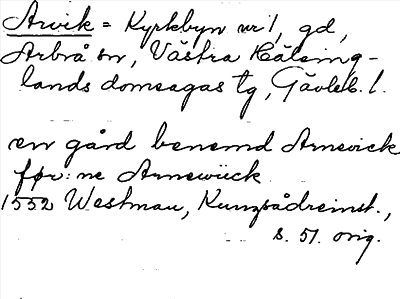 Arvik = Kyrkbyn nr 1, gd,
Arbrå sn, Västra Hälsing-
lands domsagas tg, Gävleb. l.
en gård benemd Arnevick
før: ne Arnewiick
1552 Westman, Kungsådreinst.,
s. 51. orig.